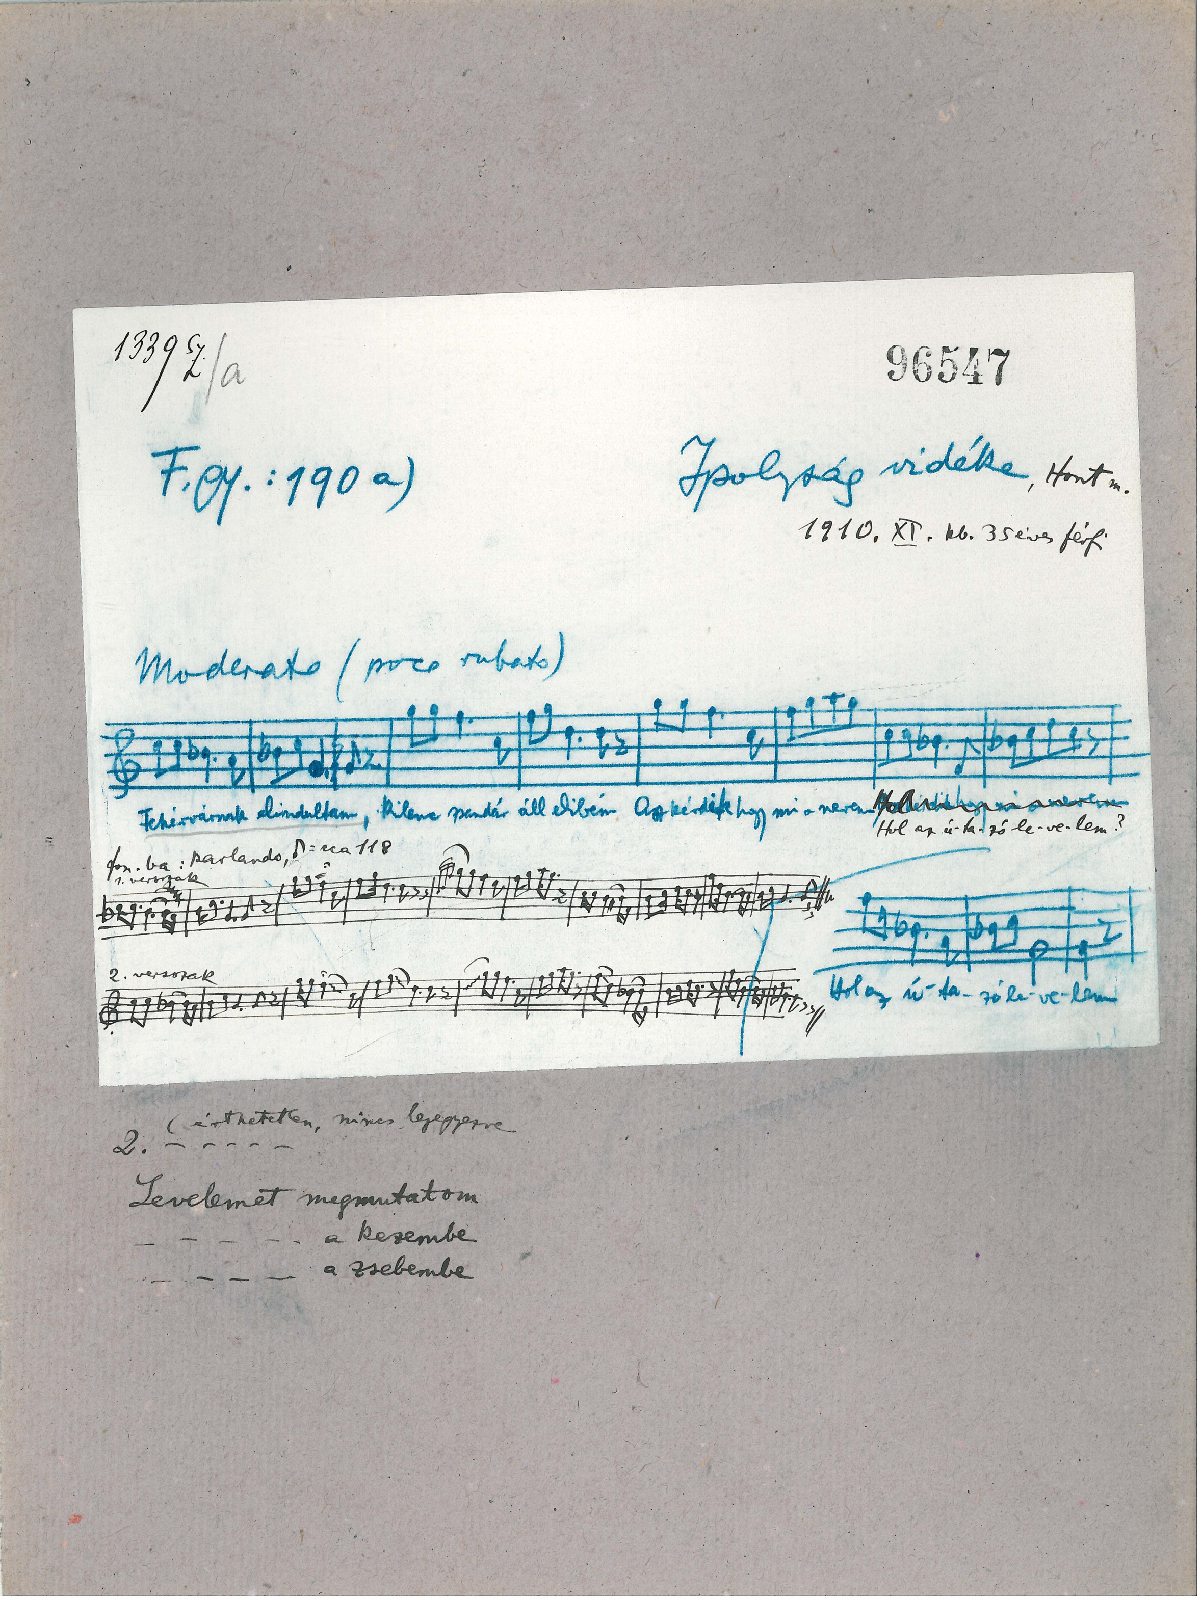 1339 sz/a
96547
F.gy.: 190 a)
Ipolyság vidéke, Hont m.
1910. XI. kb. 35 éves férfi
Moderato (poco rubato)
Fehérvárnak elindultam, kilenc zsandár áll elibém Azt kérdik hogy mi a nevem
Hol az ú-ta-zó le-ve-lem?
fon. ba: Parlando, ♪= cca 118
1. versszak
2. versszak
Hol az ú-ta-zó le-ve-lem
(érthetetlen, nincs lejegyezve
2. – – – – –
Levelemet megmutatom
– – – – – a kezembe
– – – – a zsebembe